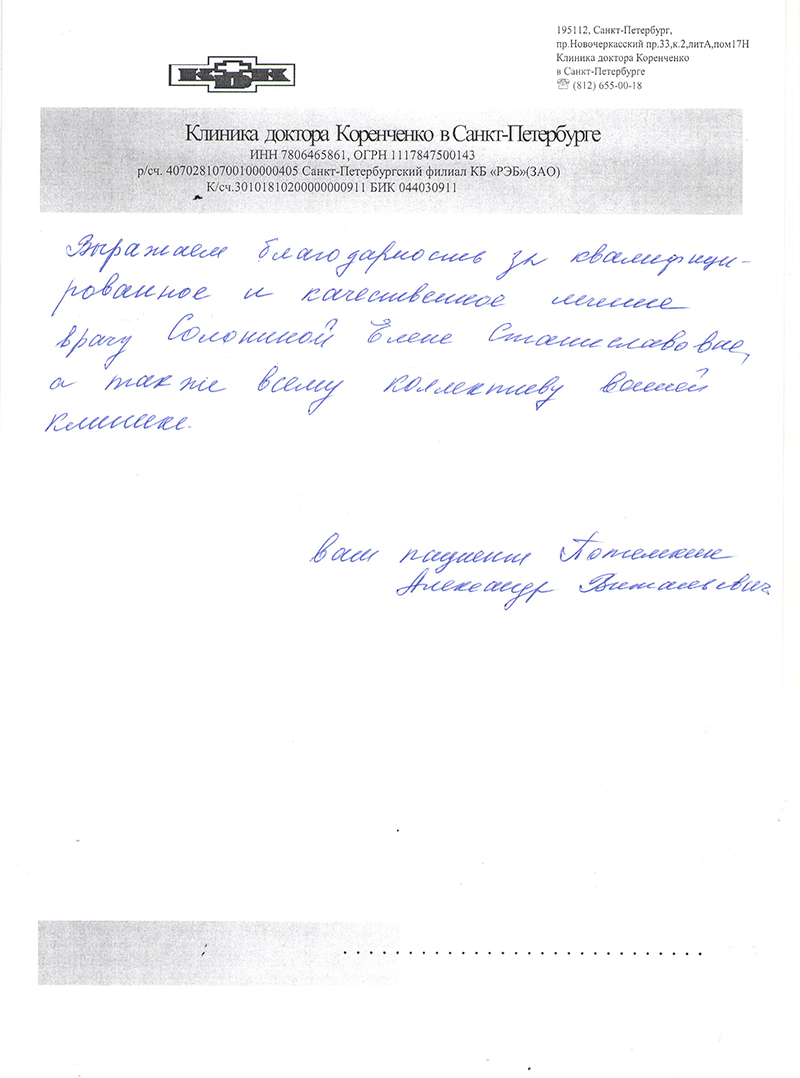 195112, Санкт-Петербург,
пр.Новочеркасский пр.33,к.2,литА,пом17Н
Клиника доктора Коренченко
в Санкт-Петербурге
☏ (812) 655-00-18
КДК
Клиника доктора Коренченко в Санкт-Петербурге
ИНН 7806465861, ОГРН 1117847500143
р/сч. 40702810700100000405 Санкт-Петербургский филиал КБ «РЭБ»(ЗАО)
К/сч.30101810200000000911 БИК 044030911
Выражаем благодарность за квалифици-
рованное и качественное лечение
врачу Солониной Елене Станиславовне,
а также всему коллективу вашей
клинике.
ваш пациент Потемкин
Александр Витальевич